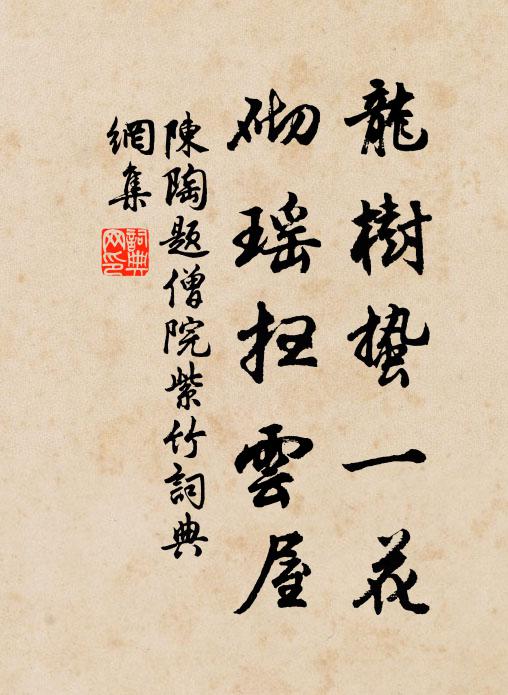 龍樹蟄一花
砌瑶扫雲屋
陳陶題僧院紫竹詞典
網集
詞典
网印